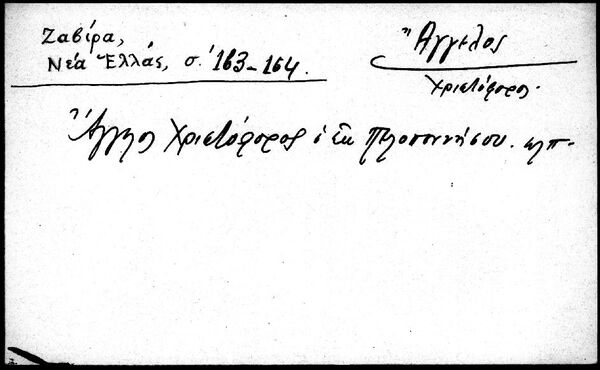 Ζαβίρα,
Νέα Ἑλλάς, σ. 163-164.
Ἄγγελος
Χριστόφορος.
Ἄγγελος Χριστόφορος ὁ ἐκ Πελοποννήσου. κλπ.